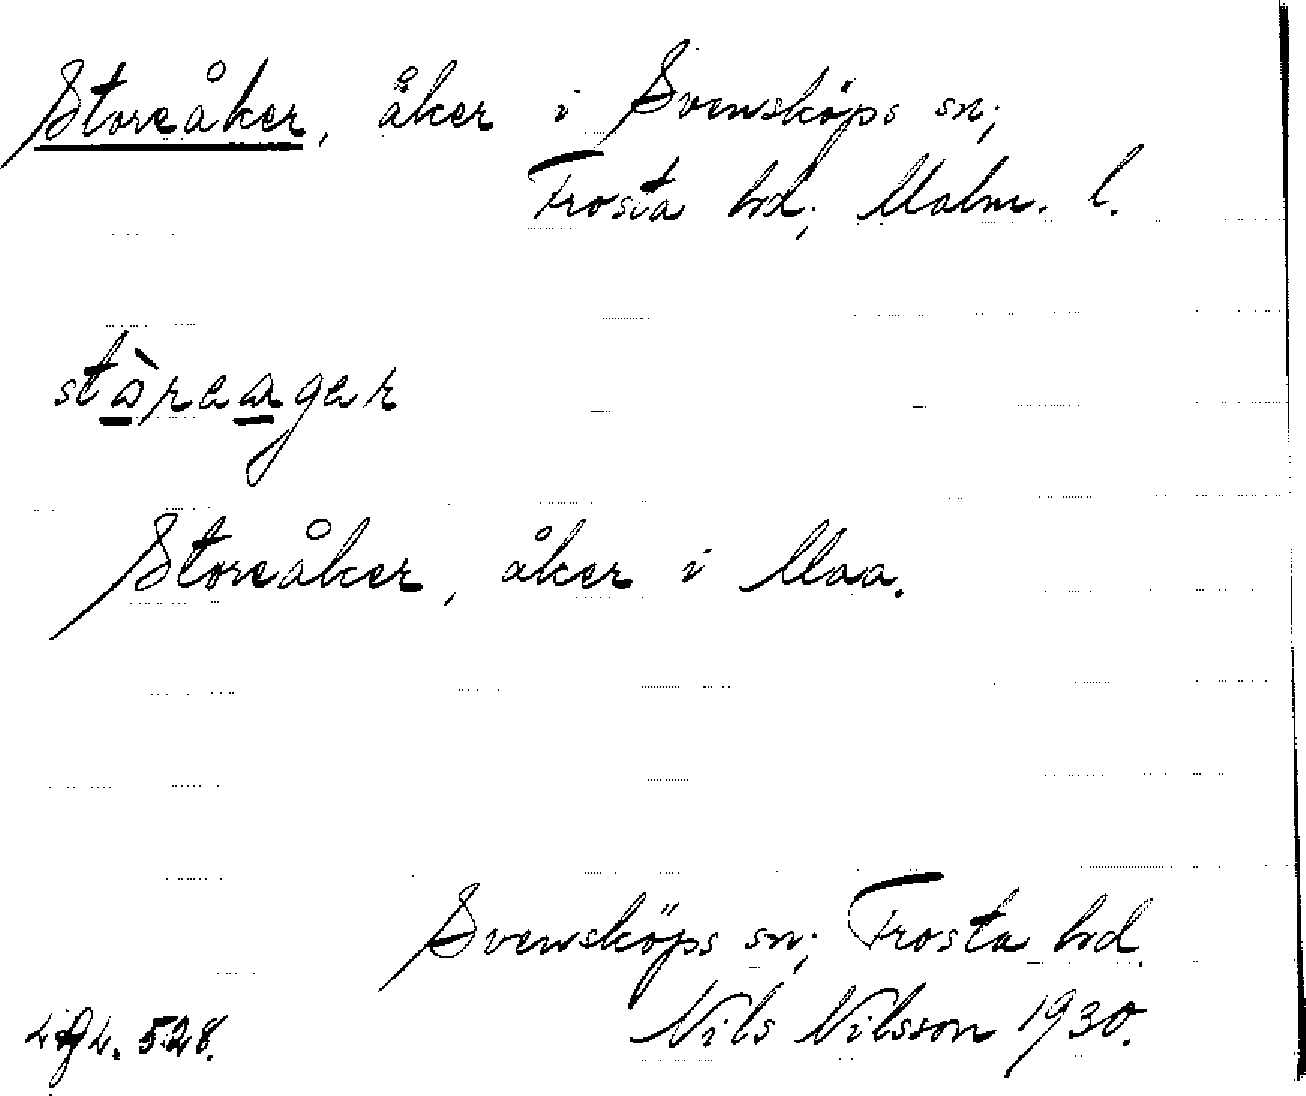 Storeåker, åker i Svensköps sn;
Frosta hd; Malm. l.
stòreager
Storeåker, åker i Maa.
Svensköps sn; Frosta hd.
Nils Nilsson 1930.
528.